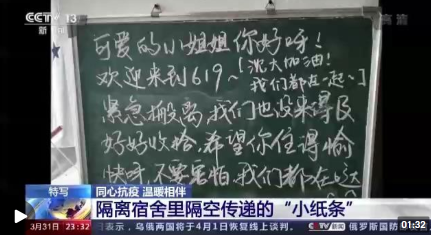 CCTV 13
新闻
高清
可爱的小姐姐你好呀!
欢迎来到619~[沈大加油!
我们都在一起~]
紧急搬离,我们也没来得及
好好收拾,希望你住得愉
快呀,不要害怕,我们都在
特写
同心抗疫 温暖相伴
隔离宿舍里隔空传递的“小纸条”
3月31日 23:32
表示,乌俄两国将于4月1日恢复线上谈判。
俄罗斯国防
01:32